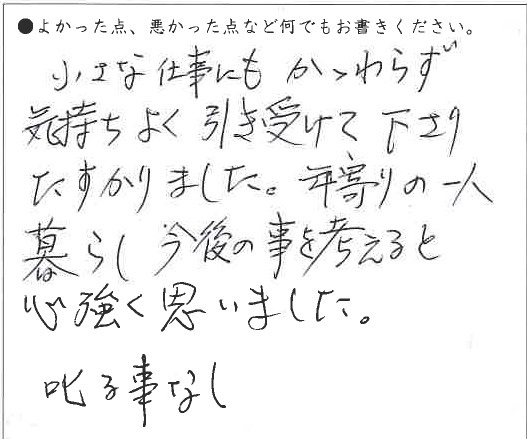 ●よかった点、悪かった点など何でもお書きください。
小さな仕事にもかゝわらず
気持ちよく引き受けて下さり
たすかりました。年寄りの一人
暮らし今後の事を考えると
心強く思いました。
叱る事なし